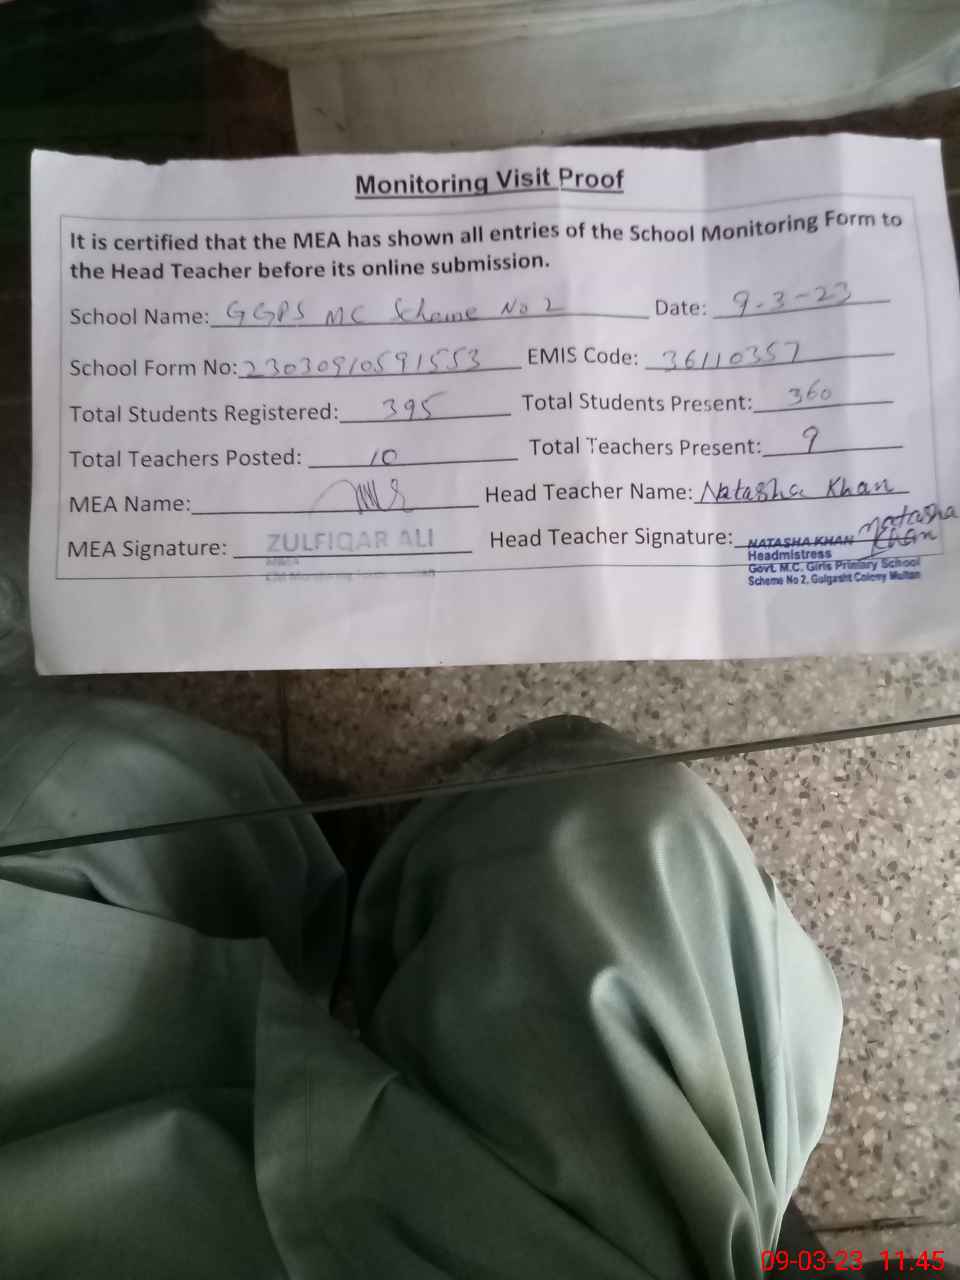 Monitoring Visit Proof
It is certified that the MEA has shown all entries of the School Monitoring Form to
the Head Teacher before its online submission.
School Name: GGPS MC Scheme No 2 Date: 9-3-23
School Form No: 23030910591553 EMIS Code: 36110357
Total Students Registered: 395 Total Students Present: 360
Total Teachers Posted: 10 Total Teachers Present: 9
MEA Name: Head Teacher Name: Natasha Khan
MEA Signature: ZULFIQAR ALI Head Teacher Signature: Natasha Khan
NATASHA KHAN
Headmistress
Govt. M.C. Girls Primary School
Scheme No 2, Gulgasht Colony Multan
09-03-23 11:45